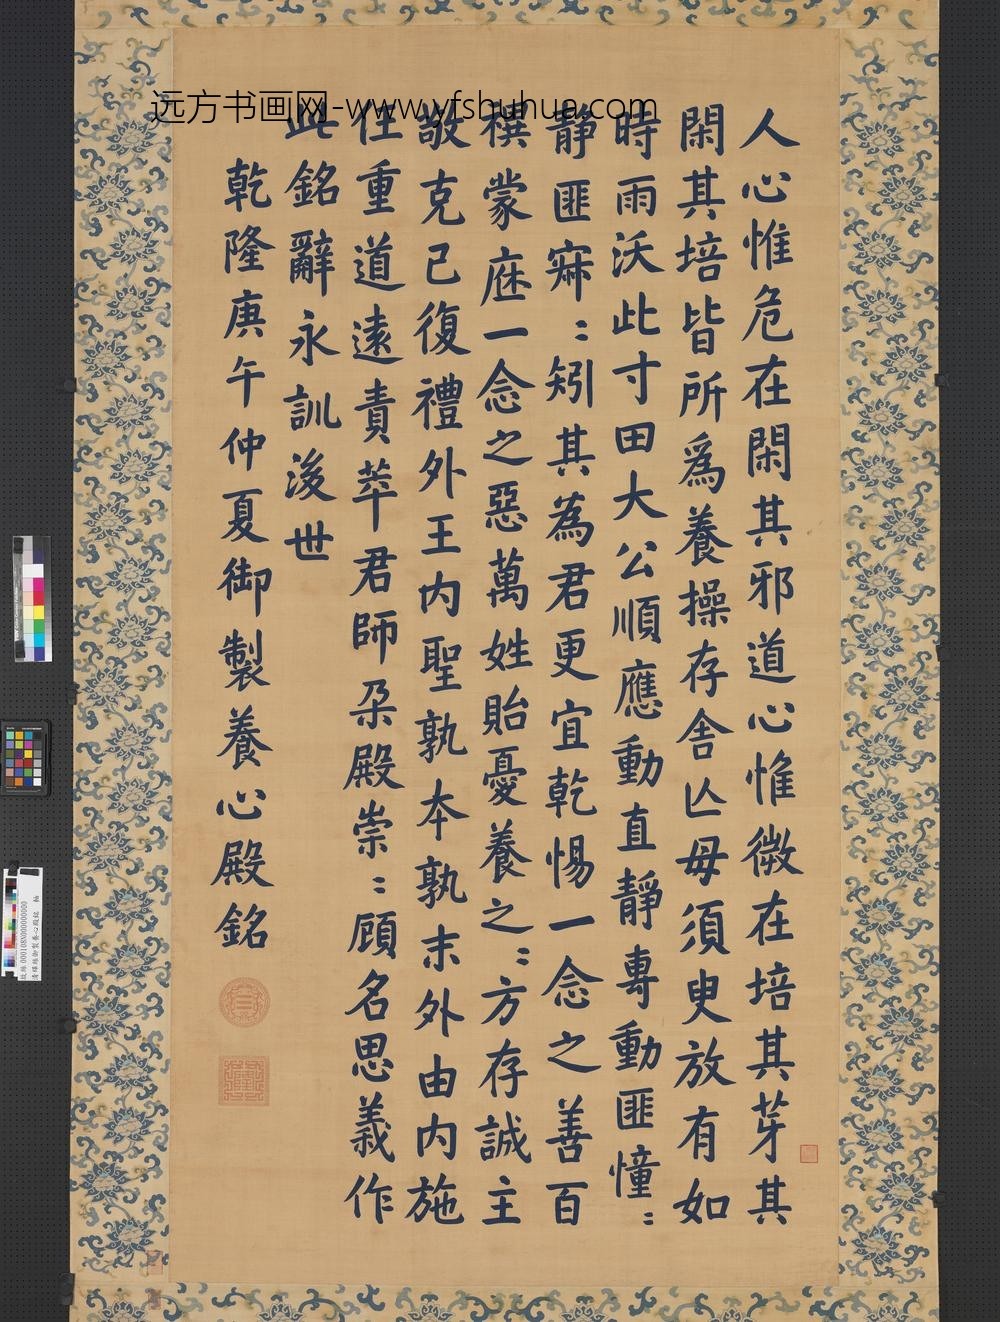 远方书画网-www.yfshuhua.com
人心惟危在閑其邪道心惟微在培其芽其
閑其培皆所爲養操存舍亾毋須臾放有如
時雨沃此寸田大公順應動直靜專動匪憧〻
靜匪寐〻矧其為君更宜乾惕一念之善百
禩蒙庥一念之惡萬姓貽憂養之〻方存誠主
敬克己復禮外王内聖孰本孰末外由内施
任重道遠責萃君師朶殿崇〻顧名思義作
此銘辭永訓後世
乾隆庚午仲夏御製養心殿銘